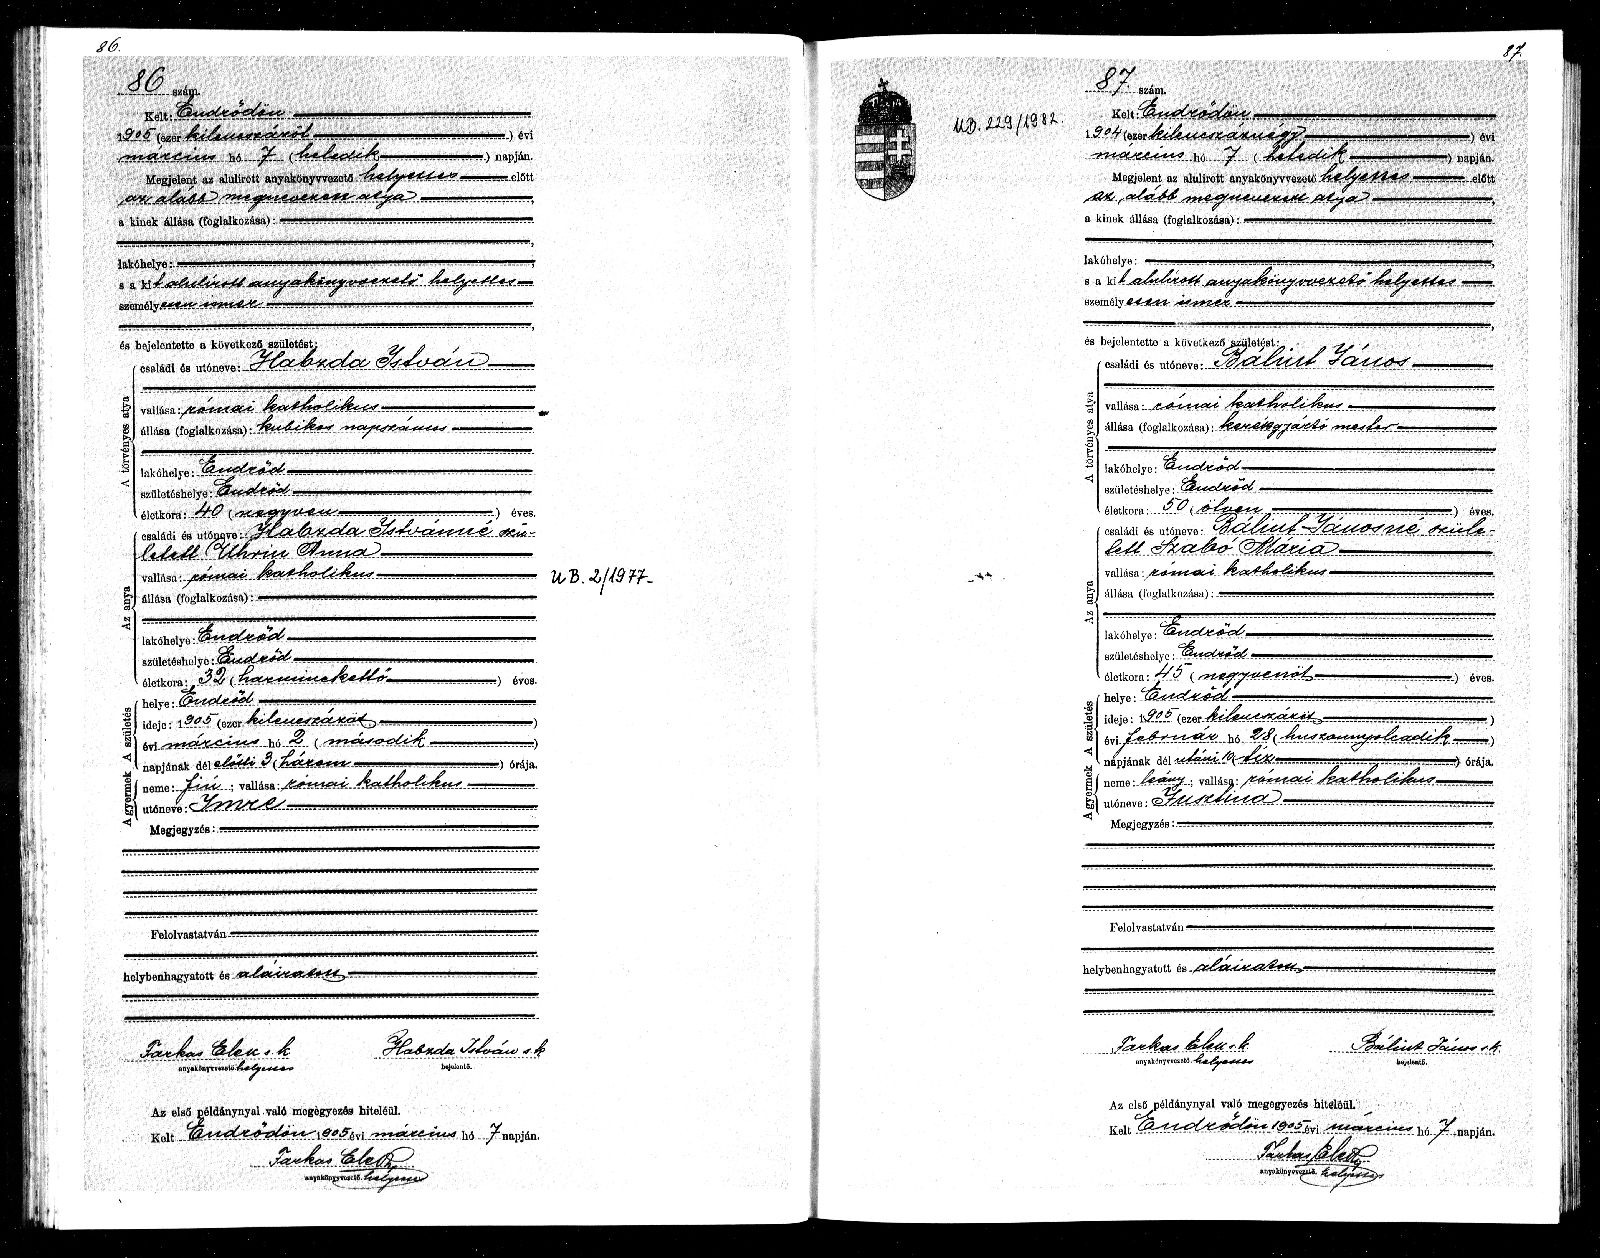 86.
86 szám.
Kelt: Endrődön
1905 (ezer kilencszázöt) évi
március hó 7 (hetedik) napján.
Megjelent az alulirott anyakönyvvezető helyettes előtt
az alább megnevezett atya,
a kinek állása (foglalkozása):
lakóhelye:
s a kit alulirott anyakönyvvezető helyettes
személyesen ismer
és bejelentette a következő születést:
A törvényes atya
családi és utóneve: Habzda István
vallása: római katholikus
állása (foglalkozása): kubikos napszámos
lakóhelye: Endrőd
születéshelye: Endrőd
életkora: 40 (negyven) éves.
Az anya
családi és utóneve: Habzda Istvánné szü-
letett Uhrin Anna
vallása: római katholikus
UB. 2/1977
állása (foglalkozása):
lakóhelye: Endrőd
születéshelye: Endrőd
életkora: 32 (harminckettő) éves.
A születés
helye: Endrőd
ideje: 1905 (ezer kilencszázöt)
évi március hó 2 (második)
napjának dél előtti 3 (három) órája.
A gyermek
neme: fiú; vallása: római katholikus
utóneve: Imre
Megjegyzés:
Felolvastatván
helybenhagyatott és aláiratott
Farkas Elek s.k.
anyakönyvvezető helyettes
Habzda István s.k.
bejelentő.
Az első példánynyal való megegyezés hiteléül.
Kelt Endrődön 1905 évi március hó 7 napján.
Farkas Elek
anyakönyvvezető. helyettes
87.
87. szám.
UB. 229/1982.
Kelt: Endrődön
1904 (ezer kilencszáznégy) évi
március hó 7 (hetedik) napján.
Megjelent az alulirott anyakönyvvezető helyettes előtt
az alább megnevezett atya
a kinek állása (foglalkozása):
lakóhelye:
s a kit alulirott anyakönyvvezető helyettes
személyesen ismer
és bejelentette a következő születést:
A törvényes atya
családi és utóneve: Bálint János
vallása: római katholikus
állása (foglalkozása): kerékgyártó mester
lakóhelye: Endrőd
születéshelye: Endrőd
életkora: 50 (ötven) éves.
Az anya
családi és utóneve: Bálint Jánosné szüle-
tett Szabó Mária
vallása: római katholikus
állása (foglalkozása):
lakóhelye: Endrőd
születéshelye: Endrőd
életkora: 45 (negyvenöt) éves.
A születés
helye: Endrőd
ideje: 1905 (ezer kilencszázöt)
évi február hó 28 (huszonnyolcadik)
napjának dél utáni 10 (tíz) órája.
A gyermek
neme: leány; vallása: római katholikus
utóneve: Jusztina
Megjegyzés:
Felolvastatván
helybenhagyatott és aláiratott
Farkas Elek s.k.
anyakönyvvezető helyettes
Bálint János s.k.
bejelentő.
Az első példánynyal való megegyezés hiteléül.
Kelt Endrődön 1905 évi március hó 7 napján.
Farkas Elek
anyakönyvvezető. helyettes